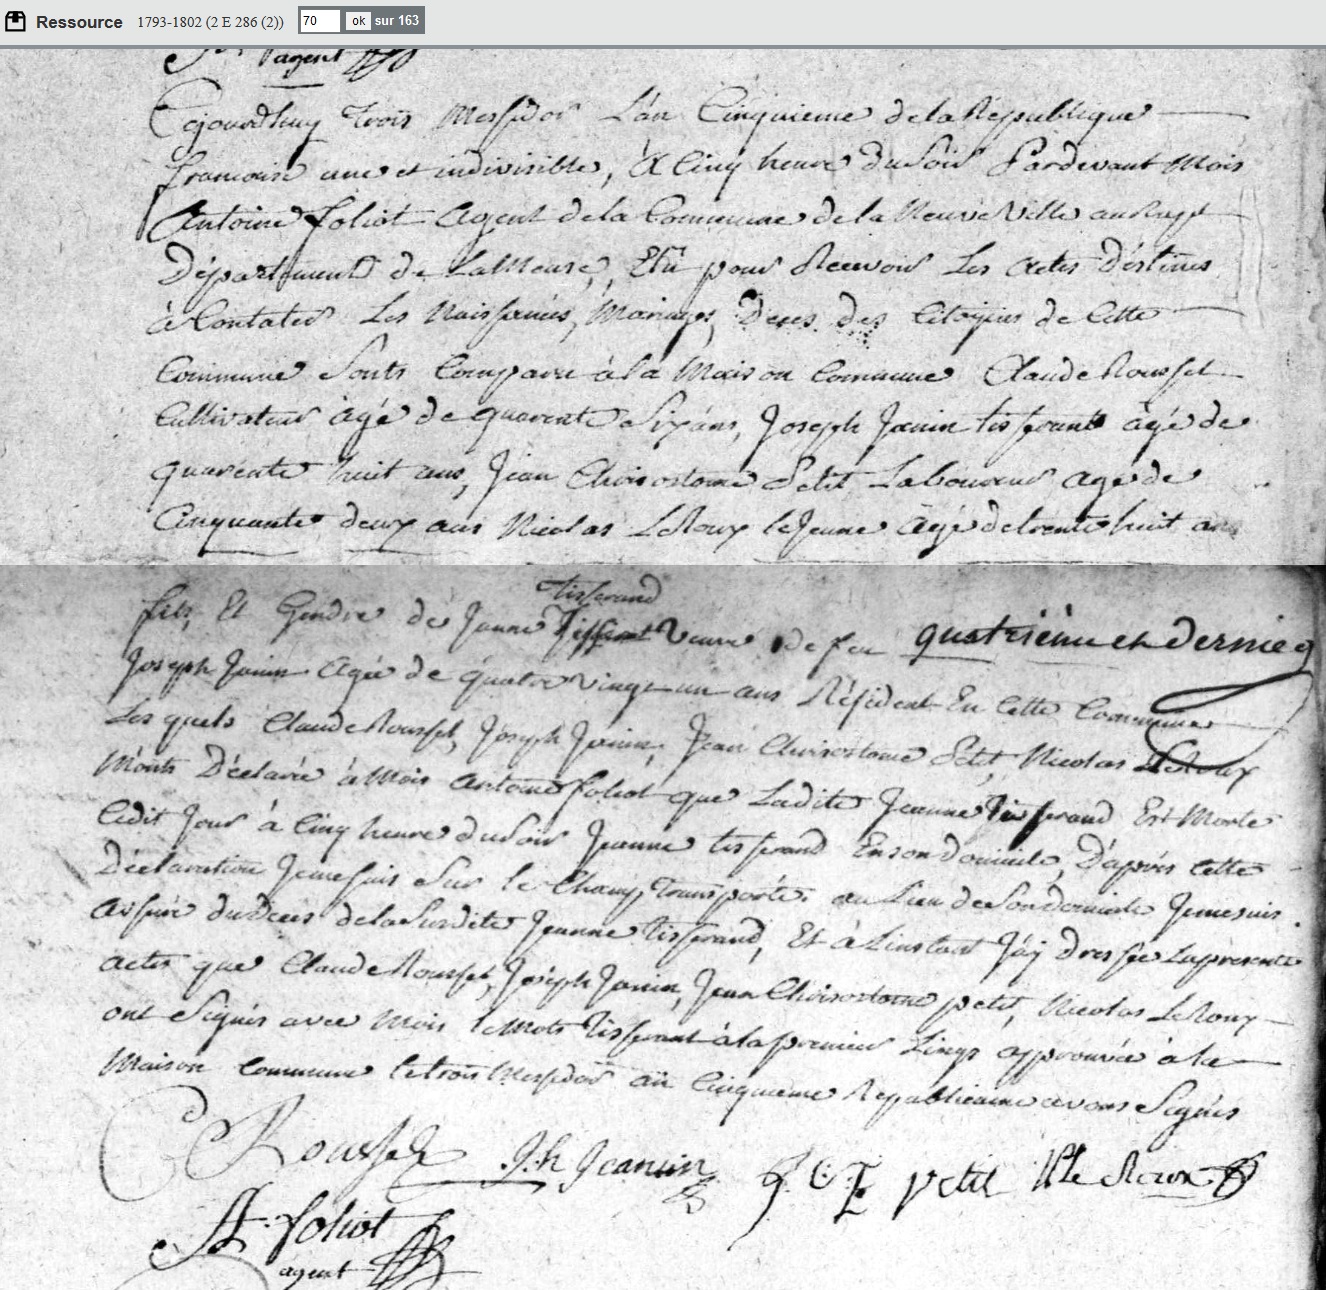 Ressource 1793-1802 (2 E 286 (2)) 70 ok sur 163
agent
Cejourdhuy trois Messidor L'an Cinquieme de la Republique
francoise une et indivisible, à Cinq heure du Soir Pardevant Mois
Antoine foliot Agent de la Commune de la Neuve Ville au Rupt
Département de La Meuse, Elû pour Recevoir Les actes déstinés
à Contater Les Naissances, Mariages, Deces des Citoyens de Cette
Commune Sonts Comparu à la Maison Commune Claude Rousset
Cultivateur àgé de quarente Six ans, Joseph Janin tisserant àgé de
quarente huit ans, Jean Chrisostome Petit Laboureur agé de
Cinquante deux ans Nicolas Le Roux le Jeune àgé de trente huit ans
tisserand
fils, Et Gendre de Janne Veuve de feu quatrième et dernier
Joseph Janin Agée de quatre vingt un ans Résident En Cette Commune
Les quels Claude Rousset, Joseph Janin, Jean Chrisostome Petit, Nicolas LeRoux
M'onts Déclaré à Mois Antoine foliot que Ladite Jeanne tisserand Est Morte
Cedit Jour à Cinq heure du Soir Jeanne tisserand En son domicile, D'après Cette
Déclaration Je me suis Sur le Champ Transporté au Lieu de Son domicile Je me suis
assuré du Deces de la Susdite Jeanne tisserand, Et à L'instant J'ay dressée La présente
actes que Claude Rousset, Joseph Janin, Jean Chrisostome petit, Nicolas LeRoux
ont Signés avec Mois le Mots Tisserant à la premier Lings approuvée à la
Maison Commune le trois Messidor an Cinquieme Republicaine avons Signés
C Rousset Jh Jeannin J C petit N le Roux
A foliot
agent